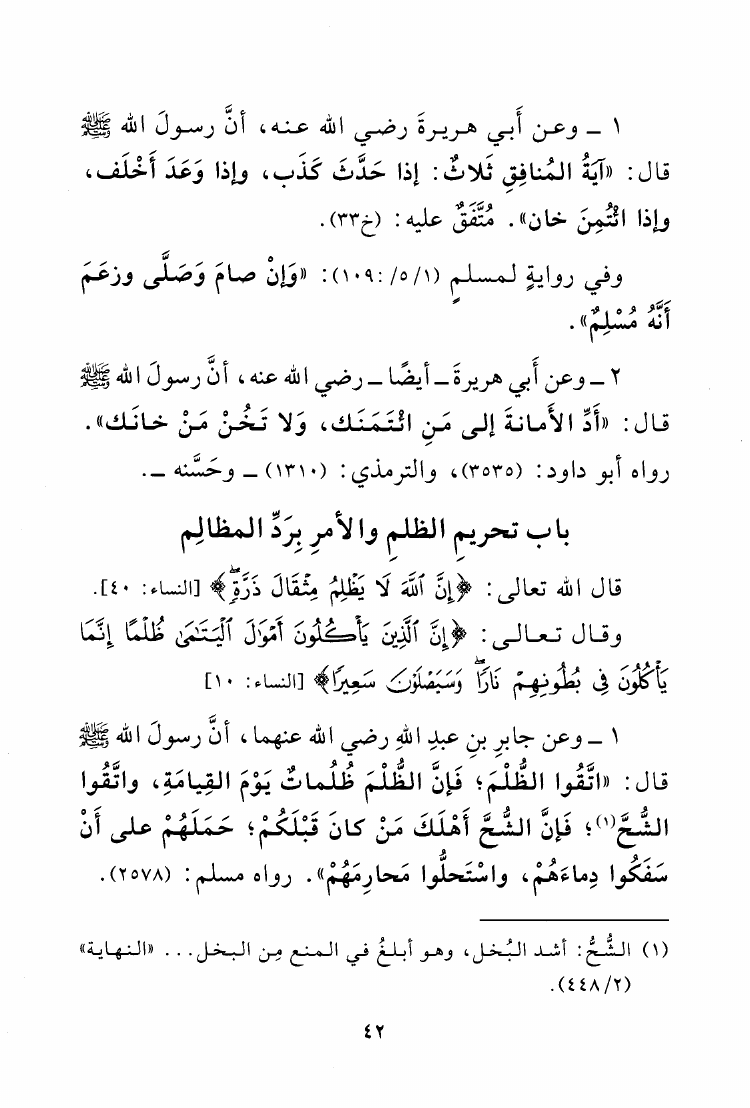 ١ ـ وعن أَبي هريرةَ رضي الله عنه، أنَّ رسولَ الله ﷺ
قال: «آيَةُ المُنافِقِ ثَلاثٌ: إذا حَدَّثَ كَذَب، وإذا وَعَدَ أَخْلَف،
وإذا ائْتُمِنَ خان». مُتَّفَقٌ عليه: (خ٣٣).
وفي روايةٍ لمسلمٍ (١٠٩:/٥/١): «وَإنْ صامَ وَصَلَّى وزعَمَ
أَنَّهُ مُسْلِمٌ».
٢ ـ وعن أَبي هريرةَ ـ أيضًا ـ رضي الله عنه، أنَّ رسولَ الله ﷺ
قال: «أَدِّ الأَمانةَ إلى مَنِ ائْتَمَنَك، وَلا تَخُنْ مَنْ خانَك».
رواه أبو داود: (٣٥٣٥)، والترمذي: (١٣١٠) ـ وحَسَّنه ـ.
باب تحريمِ الظلمِ والأمرِ بِرَدِّ المظالِم
قال الله تعالى: ﴿إِنَّ اللَّهَ لَا يَظْلِمُ مِثْقَالَ ذَرَّةٍۖ﴾ [النساء: ٤٠].
وقال تعالى: ﴿إِنَّ الَّذِينَ يَأْكُلُونَ أَمْوَٰلَ الْيَتَٰمَىٰ ظُلْمًا إِنَّمَا
يَأْكُلُونَ فِي بُطُونِهِمْ نَارًاۖ وَسَيَصْلَوْنَ سَعِيرًا﴾ [النساء: ١٠]
١ ـ وعن جابرِ بنِ عبدِ اللهِ رضي الله عنهما، أنَّ رسولَ الله ﷺ
قال: «اتَّقُوا الظُّلْمَ؛ فَإنَّ الظُّلْمَ ظُلُماتٌ يَوْمَ القِيامَةِ، واتَّقُوا
الشُّحَّ(١)؛ فَإنَّ الشُّحَّ أَهْلَكَ مَنْ كانَ قَبْلَكُمْ؛ حَمَلَهُمْ على أَنْ
سَفَكُوا دِماءَهُمْ، واسْتَحلُّوا مَحارِمَهُمْ». رواه مسلم: (٢٥٧٨).
(١) الشُّحُّ: أشد البُخل، وهو أبلغُ في المنع مِن البخل... «النهاية»
(٤٤٨/٢).
٤٢